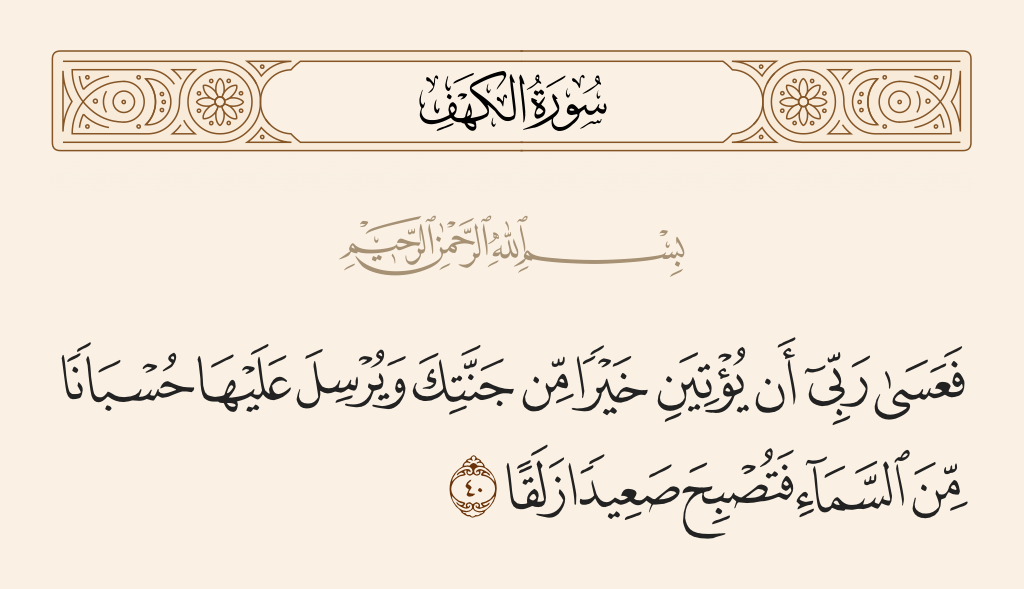 سُورَةُ الكَهْفِ
بِسْمِ ٱللَّهِ ٱلرَّحْمَٰنِ ٱلرَّحِيمِ
فَعَسَىٰ رَبِّىٓ أَن يُؤْتِيَنِ خَيْرًا مِّن جَنَّتِكَ وَيُرْسِلَ عَلَيْهَا حُسْبَانًا
مِّنَ ٱلسَّمَآءِ فَتُصْبِحَ صَعِيدًا زَلَقًا ٤٠